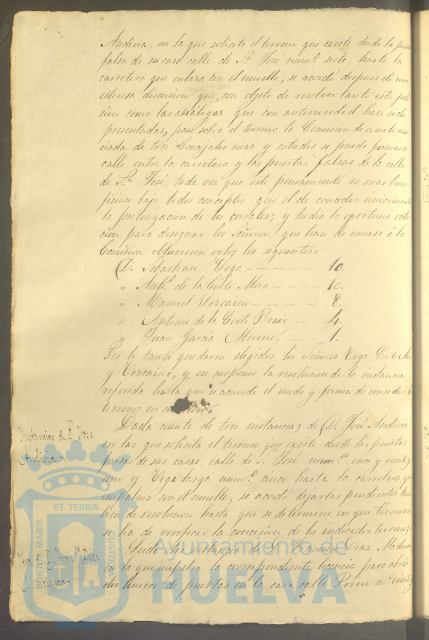 Andivia, en la que solicita el terreno que existe desde la puerta
falsa de su casa calle de Sn. José numo. siete, hasta la
carretera que enlaza con el muelle, se acordó despues de una
estensa discusion que, con objeto de resolver tanto esta peti
cion como las análogas que con anterioridad han sido
presentadas, pase sobre el terreno la Comision de ornato aso
ciada de tres Concejales mas y estudie si puede formarse
calle entre la carretera y las puertas falsas de la calle
de Sn. José, toda vez que este pensamiento es mas
bajo todos conceptos que el de conceder unicamente
la prolongacion de los corrales; y hecha la oportuna vota
cion, para designar los Señores que han de unirse á la
Comision obtuvieron votos los siguientes:
D. Sebastian Vega 10.
" Anto. de la Corte Mora 10.
" Manuel Vizcaino 8.
" Antonio de la Corte Bravo 4.
" Juan Garcia Moreno 1.
Por lo tanto quedaron elegidos los Señores Vega, Corte Mora
y Vizcaino, y en suspenso la resolucion de la instancia
referida hasta que se acuerde el modo y forma de conceder
terreno en
Instancias de D. José
Andivia
Dada cuenta de tres instancias de D. José Andivia
en las que solicita el terreno que existe desde las puertas
falsas de sus casas, calle de S. José numo. once y
uno y Vega Larga numo. cinco hasta la carretera que
empalma con el muelle, se acordó dejarlas pendientes tam
bien de resolucion hasta que se determine en que terminos
se ha de verificar la concesion de los indicados terrenos.
Dada de la instancia de D. Diaz
en la que impetra la correspondiente licencia para abrir
dos huecos de puertas en la casa calle
PORTUS MARIS ET TERRÆ CUSTODIA
Ayuntamiento de
HUELVA